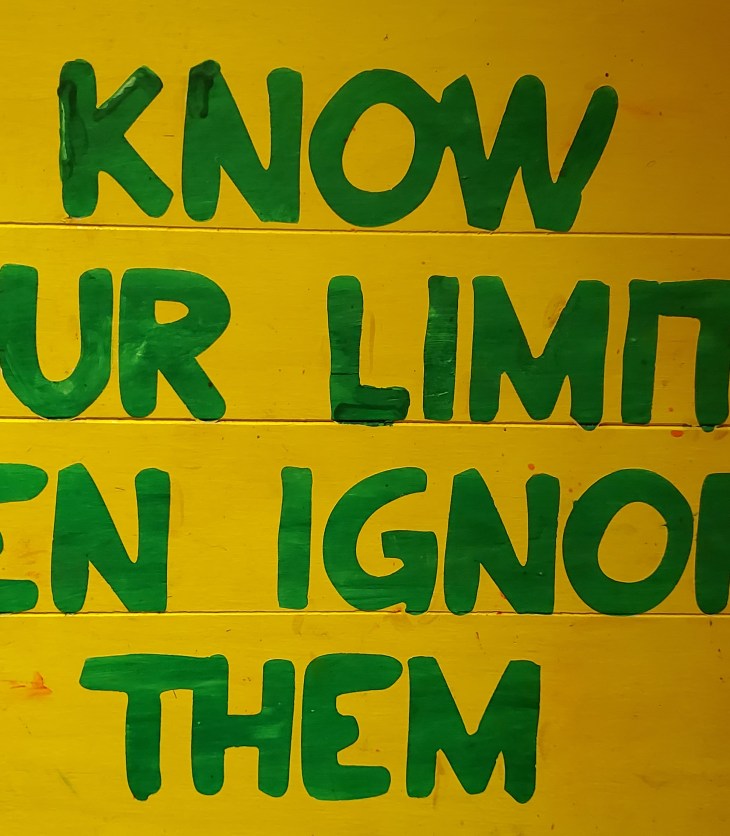 KNOW
UR LIMIT
EN IGNOR
THEM